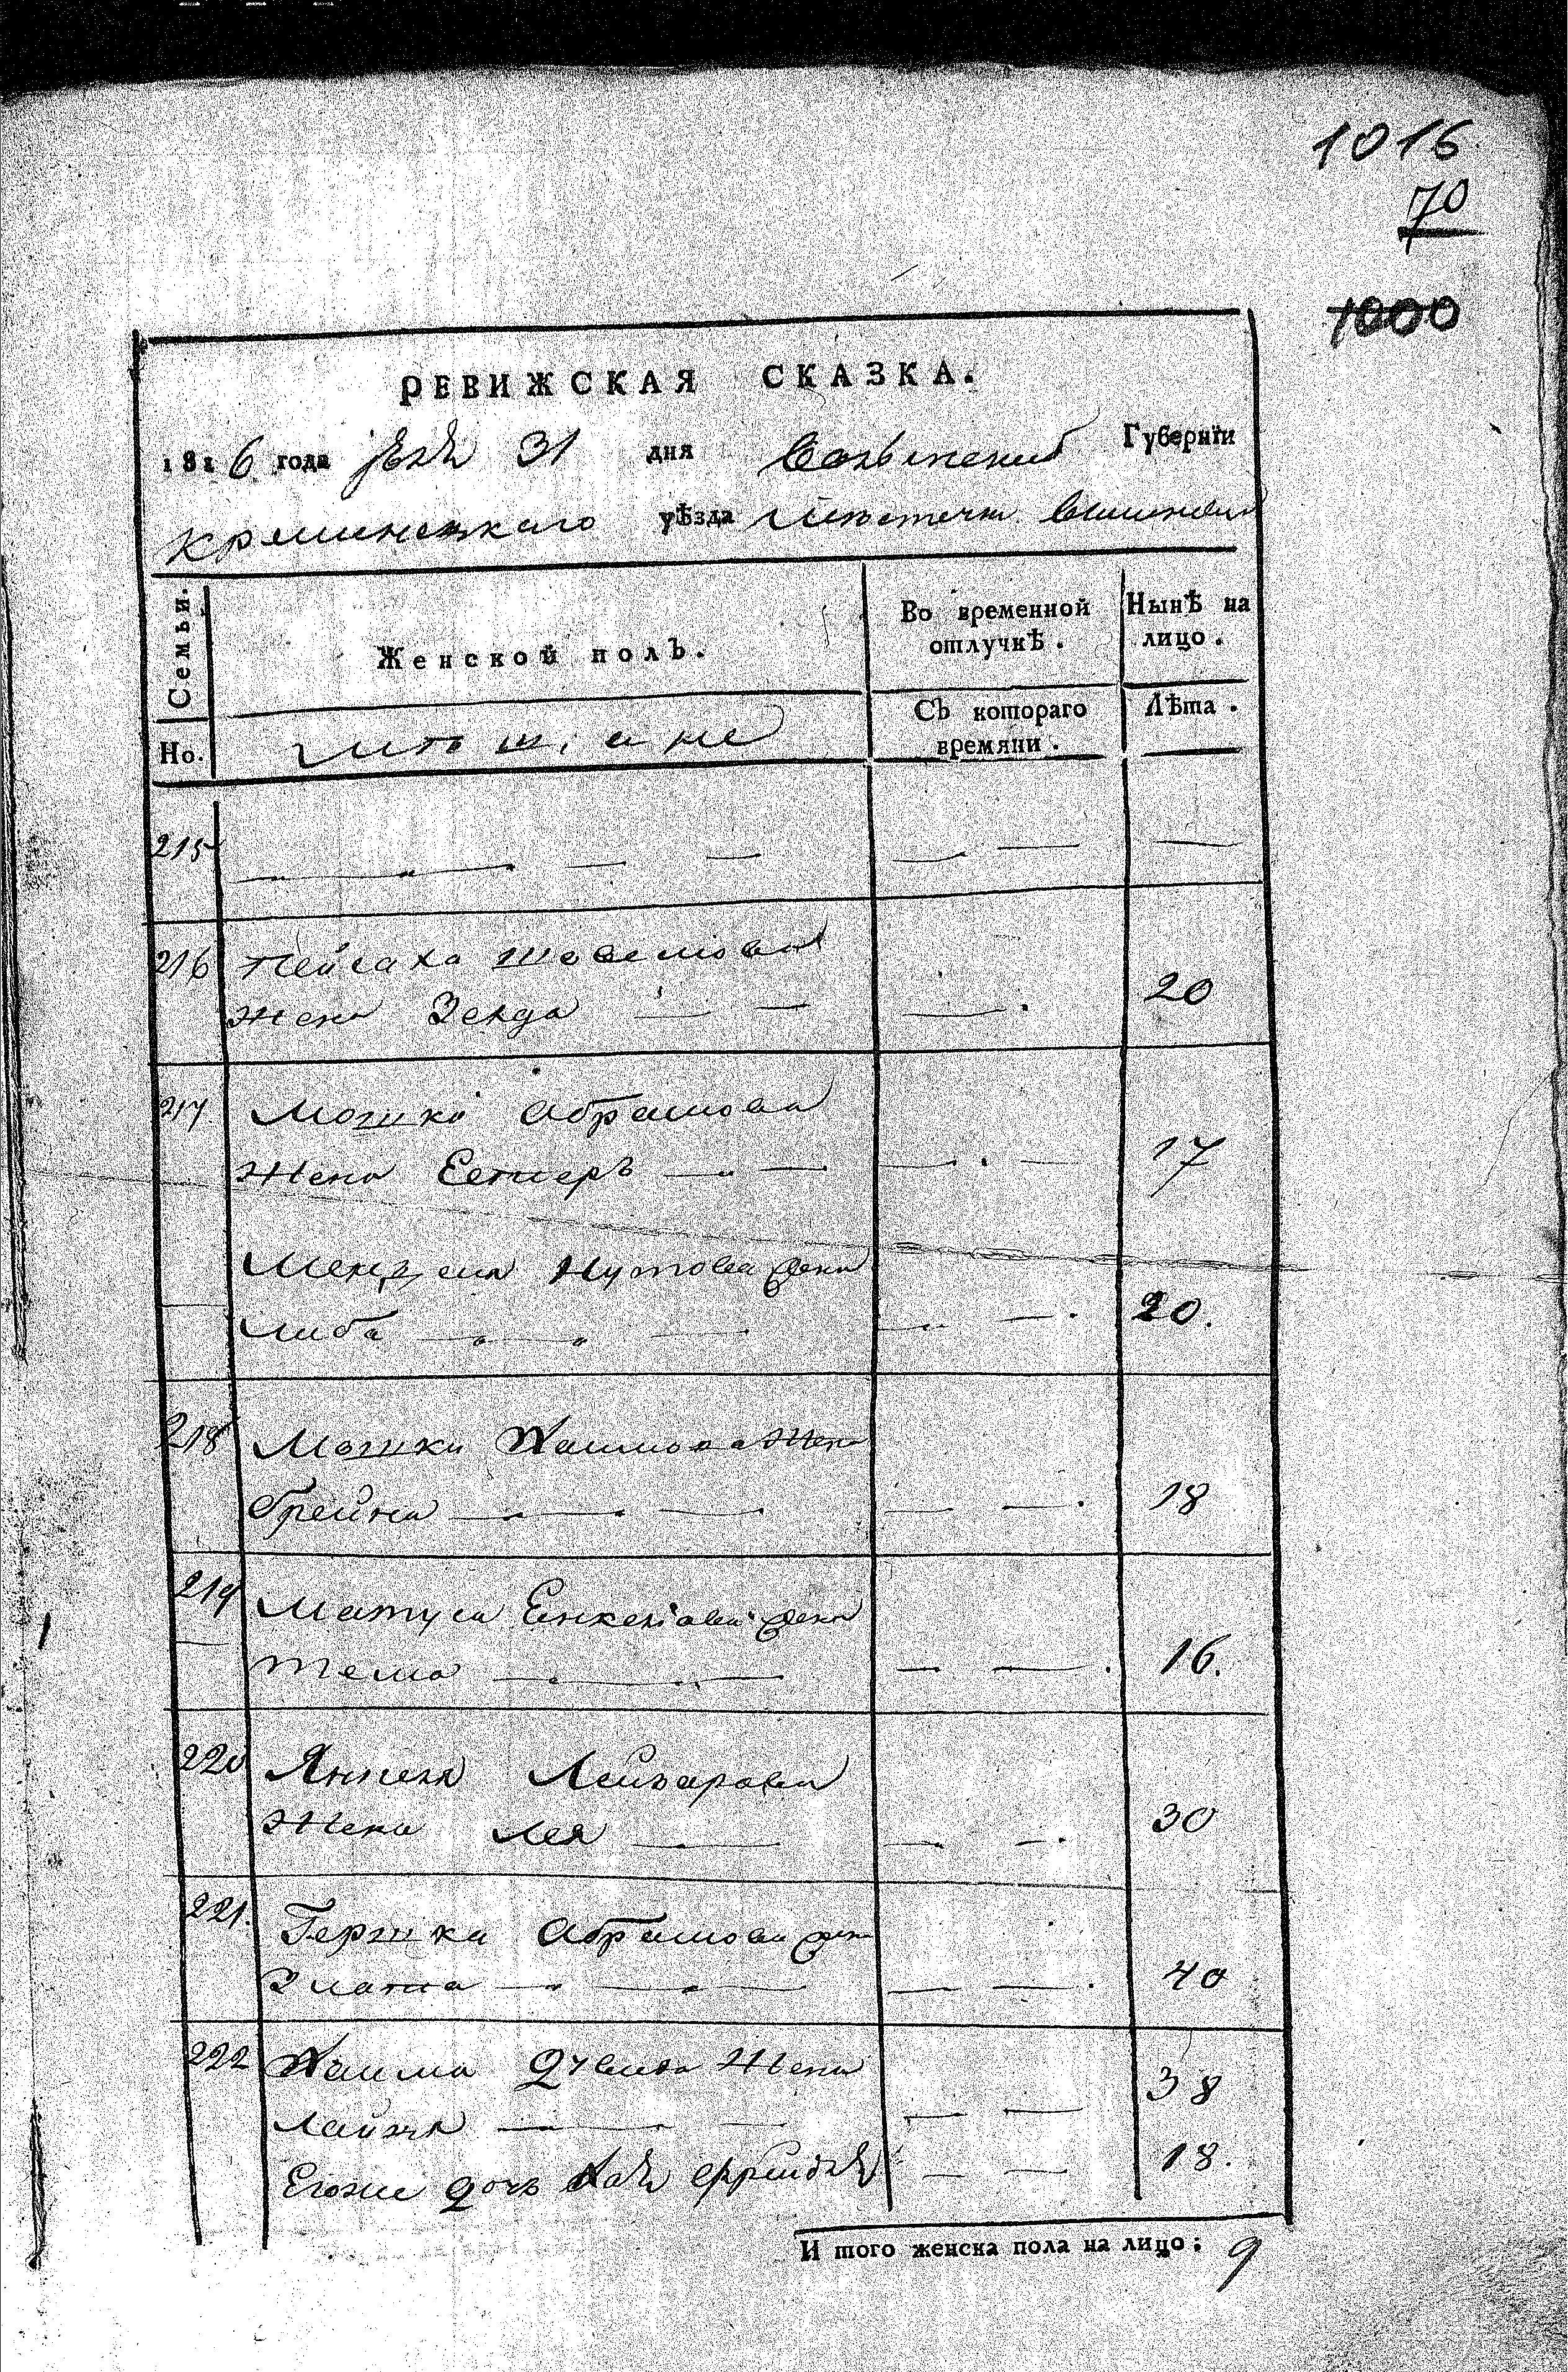 1016
70
1000
РЕВИЖСКАЯ СКАЗКА.
1816 года 31 дня Волынской Губернїи
Кременецкаго уѣзда местечка
Семьи.
Женской полъ.
Во временной отлучкѣ.
Нынѣ на лицо.
Но.
Съ котораго времяни.
Лѣта.
215
216 Пейсаха
жена Зелда 20
217 Мошка Абрамова
жена Естеръ 17
Мендля Нутова жена
Либа 20.
218 Мошки Хаимова жена
Грейна 18
219 Матуса Енкелiова жена
Тема 16.
220 Янкеля Лейзарова
жена Лея 30
221. Гершка Абрамова жена
Злата 40
222 Хаима жена
38
Егоже дочь 18.
И того женска пола на лицо: 9